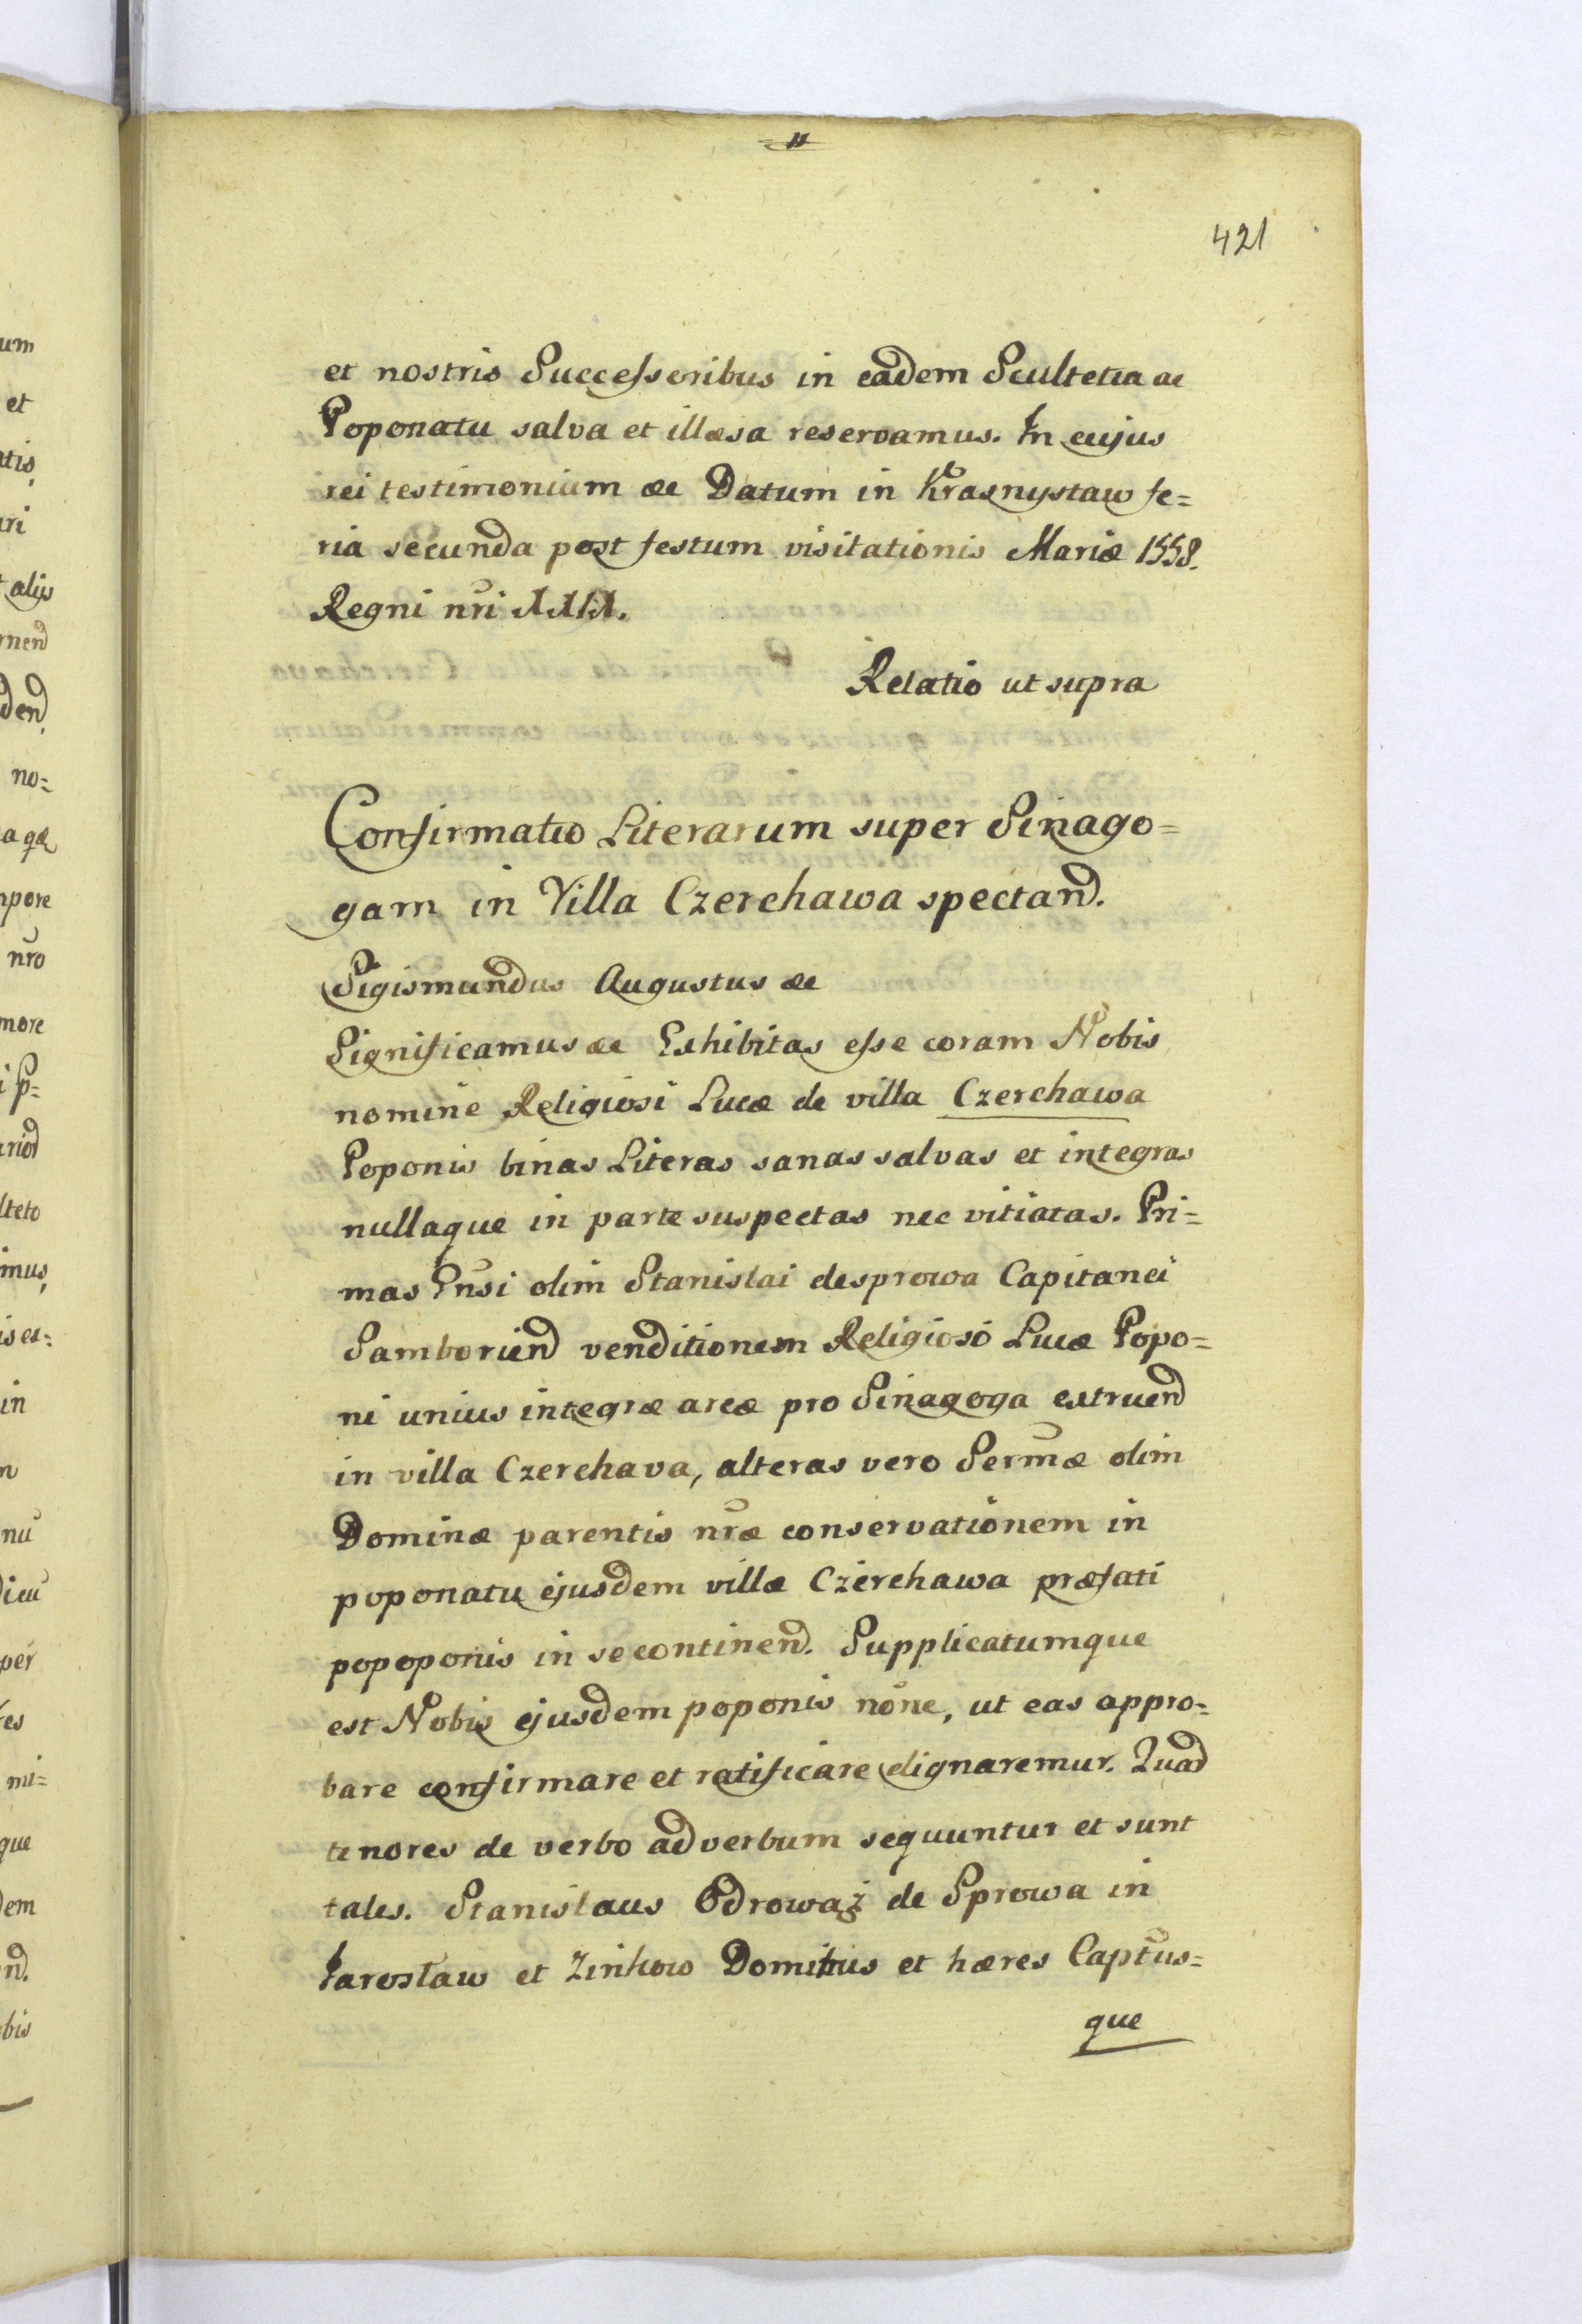 421
et nostris Successoribus in eadem Scultetia ac
Poponatu salva et illæsa reservamus. In cujus
rei testimonium &c Datum in Krasnystaw fe=
ria secunda post festum visitationis Mariæ 1558.
Regni nr̃i
Relatio ut supra
Confirmatio Literarum super Sinago=
gam in Villa Czerchawa spectand.
Sigismundus Augustus &c
Significamus &c Exhibitas esse coram Nobis
nomine Religiosi Lucæ de villa Czerchawa
Poponis binas Literas sanas salvas et integras
nullaque in parte suspectas nec vitiatas. Pri=
mas Gñsi olim Stanislai de sprowa Capitanei
Samboriend venditionem Religioso Lucæ Popo=
ni unius integræ areæ pro Sinagoga extruend
in villa Czerchava, alteras vero Serm̃æ olim
Dominæ parentis nr̃æ conservationem in
poponatu ejusdem villæ Czerchawa præfati
popoponis in se continend. Supplicatumque
est Nobis ejusdem poponis nõne, ut eas appro=
bare confirmare et ratificare dignaremur. Quad
tenores de verbo ad verbum sequuntur et sunt
tales. Stanislaus Odrowąż de Sprowa in
Jarosław et Zinkow Dominus et hæres Captũs=
que
um
et
atis,
uri
alijs
rnend
dend,
no=
a qæ
mpore
nr̃o
more
i p=
ariod
lteto
imus,
is et=
in
nu
per
mi=
que
dem
nd.
obis